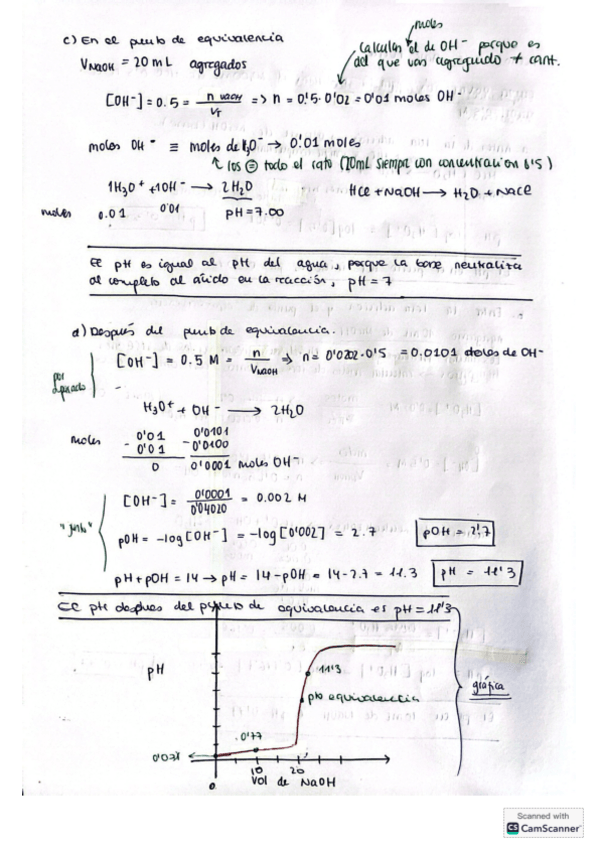 c) En el punto de equivalencia
V NaOH = 20 mL agregados
moles
Calculas el de OH⁻ porque es
del que vas agregando ≠ cant.
[OH⁻] = 0.5 = n NaOH / VT => n = 0'5 · 0'02 = 0'01 moles OH⁻
moles OH⁻ ≡ moles de H3O⁻ → 0'01 moles
los ⊜ todo el rato (20mL siempre con concentración 0'5)
1H3O⁺ + 1OH⁻ → 2H2O
HCl + NaOH → H2O + NaCl
moles 0.01 0'01 pH = 7.00
El pH es igual al pH del agua, porque la base neutraliza
al completo al ácido en la reacción, pH = 7
d) Después del punto de equivalencia.
por separado
[OH⁻] = 0.5 M = n / V NaOH => n = 0'0202 · 0'5 = 0.0101 moles de OH⁻
H3O⁺ + OH⁻ → 2H2O
moles 0'01 0'0101
- 0'01 - 0'0100
0 0'0001 moles OH⁻
"junto"
[OH⁻] = 0'0001 / 0'04020 = 0.002 M
pOH = -log[OH⁻] = -log[0'002] = 2.7 pOH = 2'7
pH + pOH = 14 → pH = 14 - pOH = 14 - 2.7 = 11.3 pH = 11'3
El pH despues del punto de equivalencia es pH = 11'3
pH
11'3
pto equivalencia
gráfica
0'77
10 20
0
Vol de NaOH
Scanned with
CS CamScanner